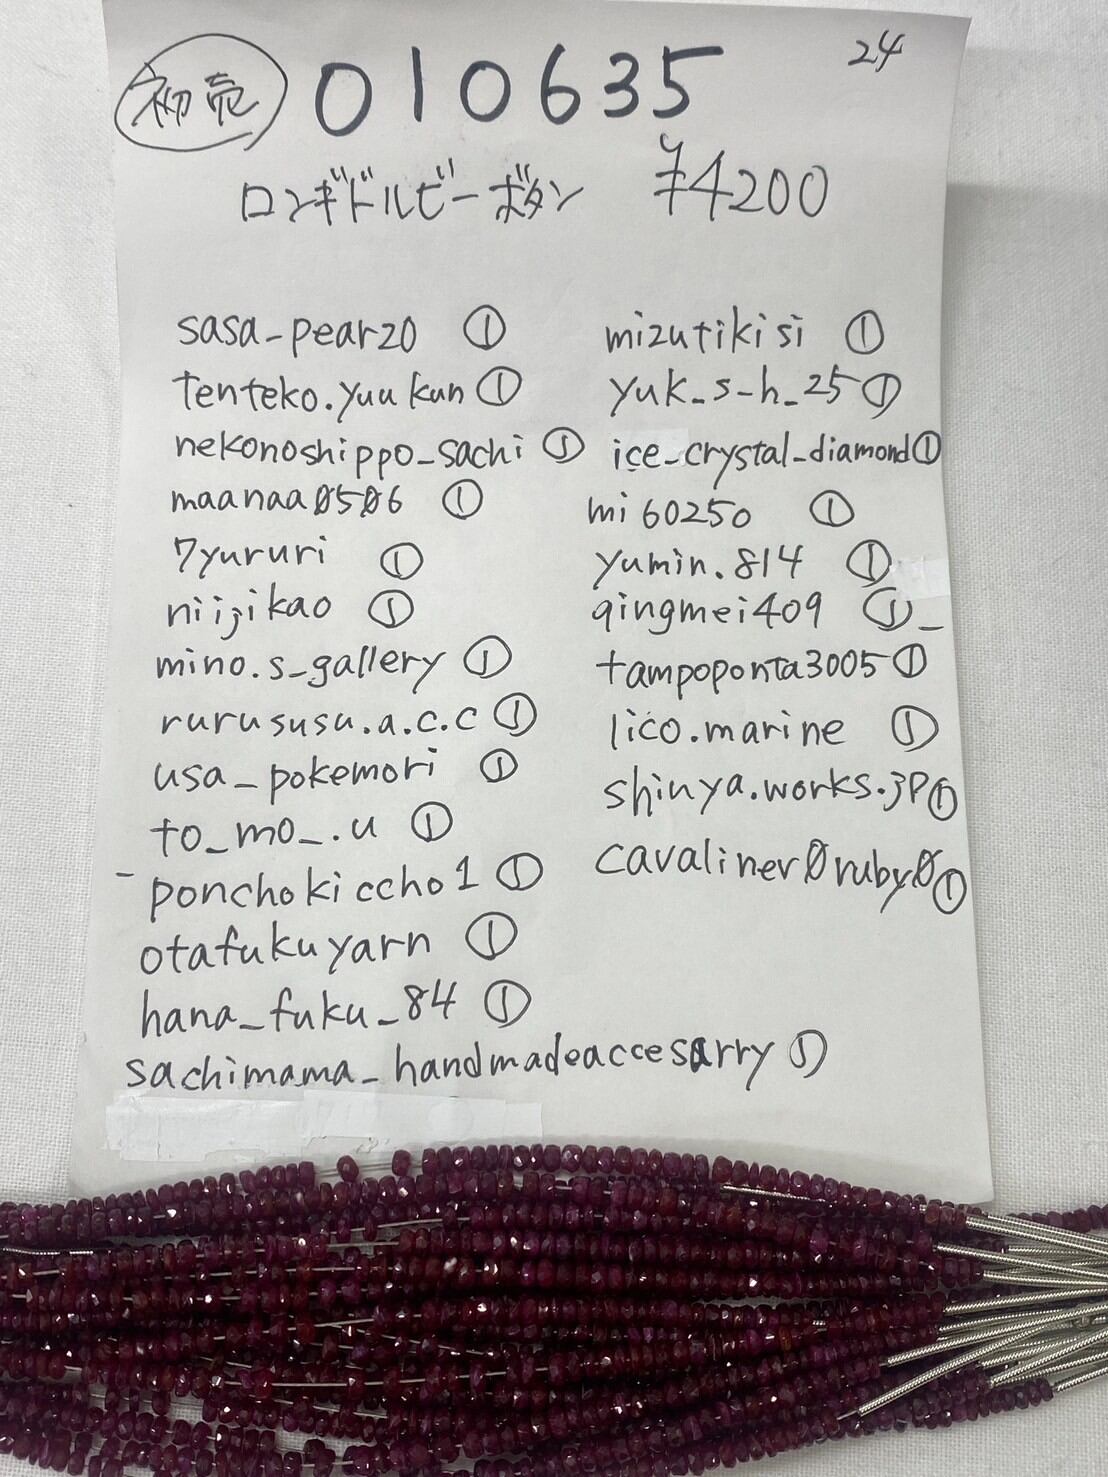 初売 010635 24
ロンギドルビーボタン ¥4200
sasa_pear20 ①
tenteko.yuukun ①
nekonoshippo_sachi ①
maanaa0506 ①
7yururi ①
niijikao ①
mino.s_gallery ①
rurususu.a.c.c ①
usa_pokemori ①
to_mo_.u ①
ponchokiccho1 ①
otafukuyarn ①
hana_fuku_84 ①
sachimama_handmadeaccesarry ①
mizutikisi ①
yuk_s_h_25 ①
ice_crystal_diamond ①
mi60250 ①
yumin.814 ①
qingmei409 ①_
tampoponta3005 ①
lico.marine ①
shinya.works.jp ①
cavaliner0ruby0 ①